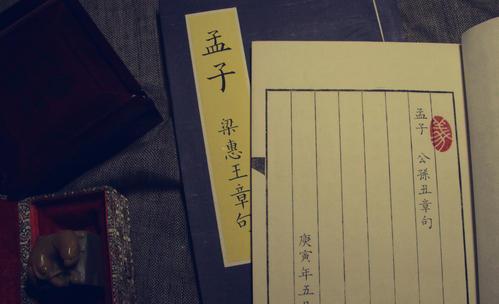 孟子
梁惠王章句
孟子 公孫丑章句
庚寅年五
義